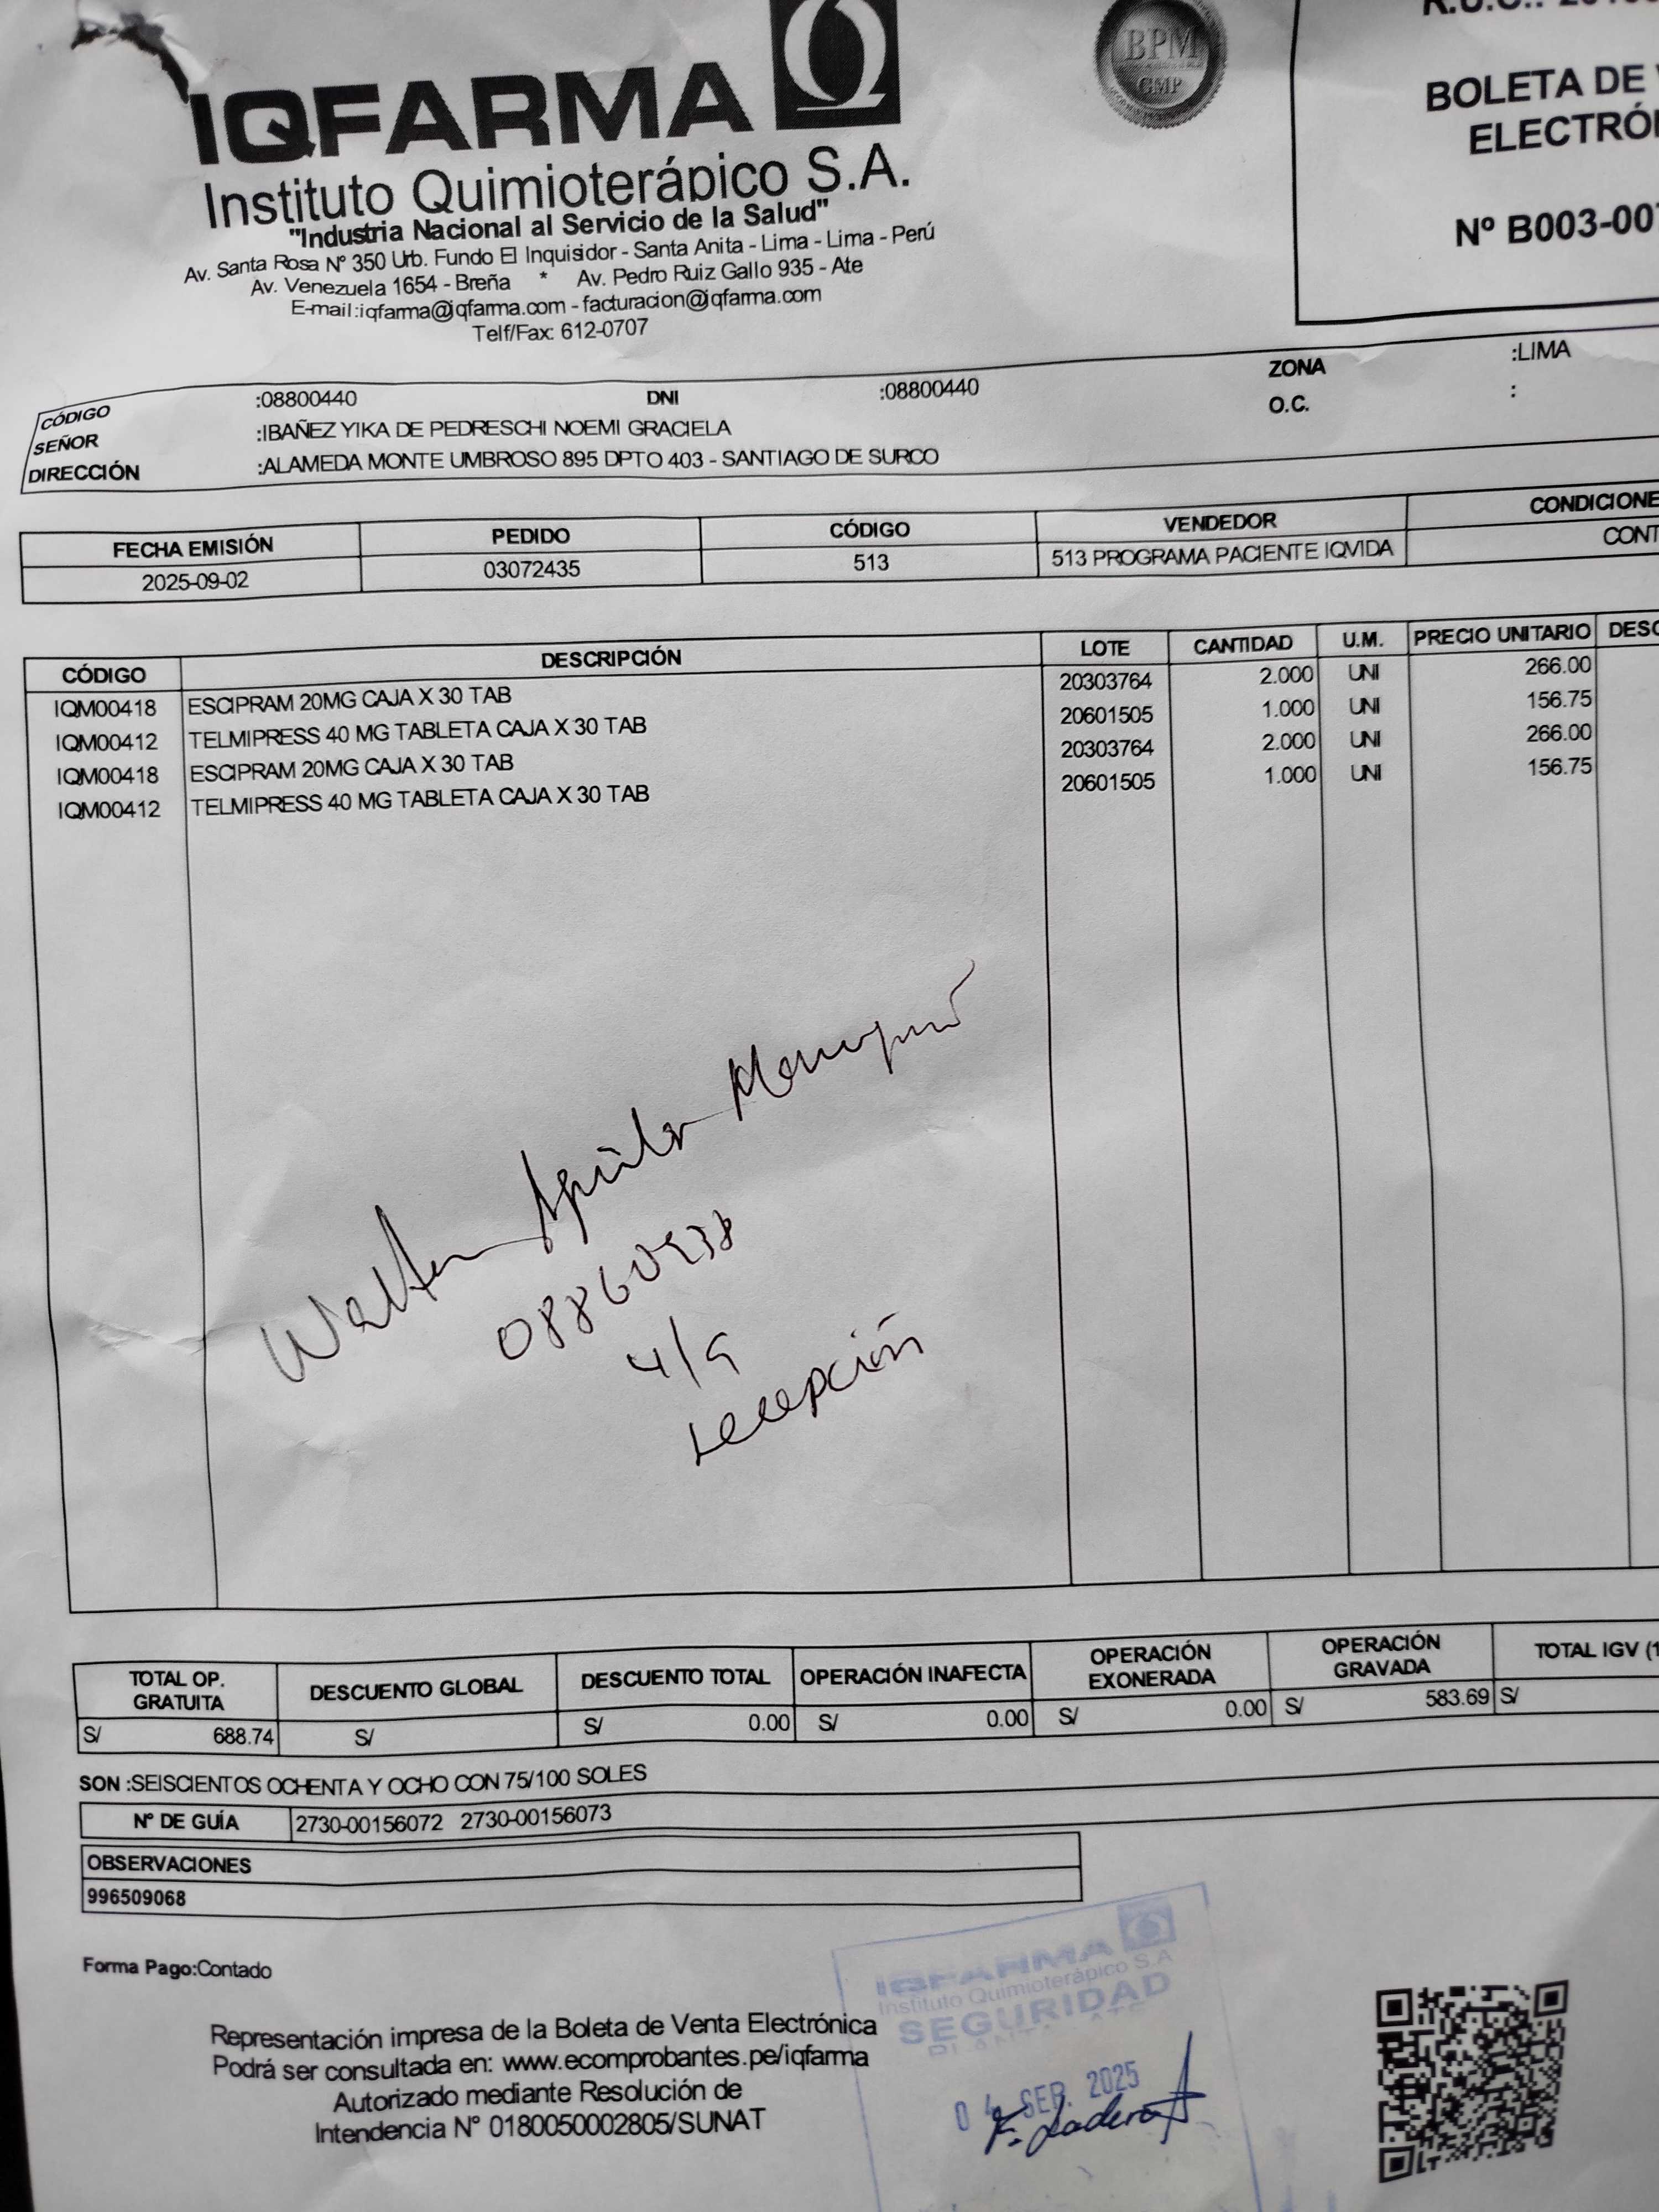 IQFARMA
Instituto Quimioterápico S.A.
"Industria Nacional al Servicio de la Salud"
Av. Santa Rosa Nº 350 Urb. Fundo El Inquisidor - Santa Anita - Lima - Lima - Perú
Av. Venezuela 1654 - Breña * Av. Pedro Ruiz Gallo 935 - Ate
E-mail:iqfarma@iqfarma.com - facturacion@iqfarma.com
Telf/Fax: 612-0707
BPM
GMP
R.U.C.:
BOLETA DE
ELECTRÓ
Nº B003-00
CÓDIGO :08800440 DNI :08800440 ZONA :LIMA
SEÑOR :IBAÑEZ YIKA DE PEDRESCHI NOEMI GRACIELA O.C. :
DIRECCIÓN :ALAMEDA MONTE UMBROSO 895 DPTO 403 - SANTIAGO DE SURCO
FECHA EMISIÓN PEDIDO CÓDIGO VENDEDOR CONDICIONE
2025-09-02 03072435 513 513 PROGRAMA PACIENTE IQVIDA CONT
CÓDIGO DESCRIPCIÓN LOTE CANTIDAD U.M. PRECIO UNITARIO DESC
IQM00418 ESCIPRAM 20MG CAJA X 30 TAB 20303764 2.000 UNI 266.00
IQM00412 TELMIPRESS 40 MG TABLETA CAJA X 30 TAB 20601505 1.000 UNI 156.75
IQM00418 ESCIPRAM 20MG CAJA X 30 TAB 20303764 2.000 UNI 266.00
IQM00412 TELMIPRESS 40 MG TABLETA CAJA X 30 TAB 20601505 1.000 UNI 156.75
Walter
4/9
recepción
TOTAL OP. GRATUITA DESCUENTO GLOBAL DESCUENTO TOTAL OPERACIÓN INAFECTA OPERACIÓN EXONERADA OPERACIÓN GRAVADA TOTAL IGV (1
S/ 688.74 S/ S/ 0.00 S/ 0.00 S/ 0.00 S/ 583.69 S/
SON :SEISCIENTOS OCHENTA Y OCHO CON 75/100 SOLES
Nº DE GUÍA 2730-00156072 2730-00156073
OBSERVACIONES
996509068
Forma Pago:Contado
Representación impresa de la Boleta de Venta Electrónica
Podrá ser consultada en: www.ecomprobantes.pe/iqfarma
Autorizado mediante Resolución de
Intendencia N° 0180050002805/SUNAT
IQFARMA
Instituto Quimioterápico S.A
SEGURIDAD
PLANTA ATE
04 SEP. 2025